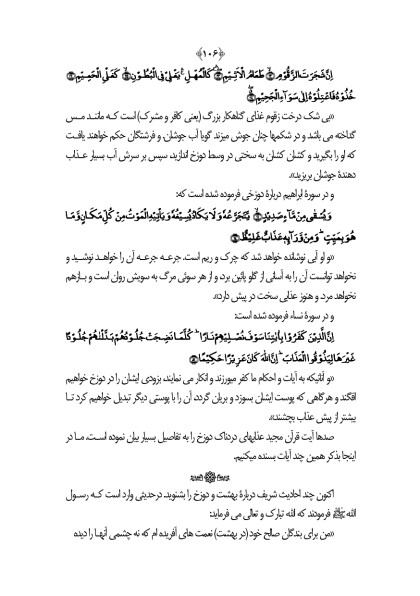 ﴿۱۰۶﴾
اِنَّ شَجَرَتَ الزَّقُّوْمِ ۙ طَعَامُ الْاَثِيْمِ ۛۚ كَالْمُهْلِ ۛۚ يَغْلِيْ فِي الْبُطُوْنِ ۙ كَغَلْيِ الْحَمِيْمِ
خُذُوْهُ فَاعْتِلُوْهُ اِلٰى سَوَآءِ الْجَحِيْمِ
«بی شک درخت زقوم غذای گناهکار بزرگ (یعنی کافر و مشرک) است که مانند مس
گداخته می باشد و در شکمها چنان جوش میزند گویا آب جوشان. و فرشتگان حکم خواهند یافت
که او را بگیرید و کشان کشان به سختی در وسط دوزخ اندازید، سپس بر سرش آب بسیار عذاب
دهندهٔ جوشان بریزید».
و در سورهٔ ابراهیم دربارهٔ دوزخی فرموده شده است که:
وَيُسْقٰى مِنْ مَّآءٍ صَدِيْدٍ ۙ يَّتَجَرَّعُهٗ وَلَا يَكَادُ يُسِيْغُهٗ وَيَاْتِيْهِ الْمَوْتُ مِنْ كُلِّ مَكَانٍ وَّمَا
هُوَ بِمَيِّتٍ ۭ وَمِنْ وَّرَآئِهٖ عَذَابٌ غَلِيْظٌ
«و او آبی نوشانده خواهد شد که چرک و ریم است. جرعه جرعه آن را خواهد نوشید و
نخواهد توانست آن را به آسانی از گلو پائین برد، و از هر سوئی مرگ به سویش روان است و بازهم
نخواهد مرد و هنوز عذابی سخت در پیش دارد».
و در سورهٔ نساء فرموده شده است:
اِنَّ الَّذِيْنَ كَفَرُوْا بِاٰيٰتِنَا سَوْفَ نُصْلِيْهِمْ نَارًا ۭ كُلَّمَا نَضِجَتْ جُلُوْدُھُمْ بَدَّلْنٰھُمْ جُلُوْدًا
غَيْرَھَا لِيَذُوْقُوا الْعَذَابَ ۭ اِنَّ اللّٰهَ كَانَ عَزِيْزًا حَكِيْمًا
«و آنانیکه به آیات و احکام ما کفر میورزند و انکار می نمایند، بزودی ایشان را در دوزخ خواهیم
افکند و هرگاهی که پوست ایشان بسوزد و بریان گردد، آن را با پوستی دیگر تبدیل خواهیم کرد تا
بیشتر از پیش عذاب بچشند».
صدها آیت قرآن مجید عذابهای دردناک دوزخ را به تفاصیل بسیار بیان نموده است. ما در
اینجا بذکر همین چند آیات بسنده میکنیم.
اکنون چند احادیث شریف دربارهٔ بهشت و دوزخ را بشنوید. درحدیثی وارد است که رسول
الله ﷺ فرمودند که الله تبارک و تعالی می فرماید:
«من برای بندگان صالح خود (در بهشت) نعمت های آفریده ام که نه چشمی آنها را دیده